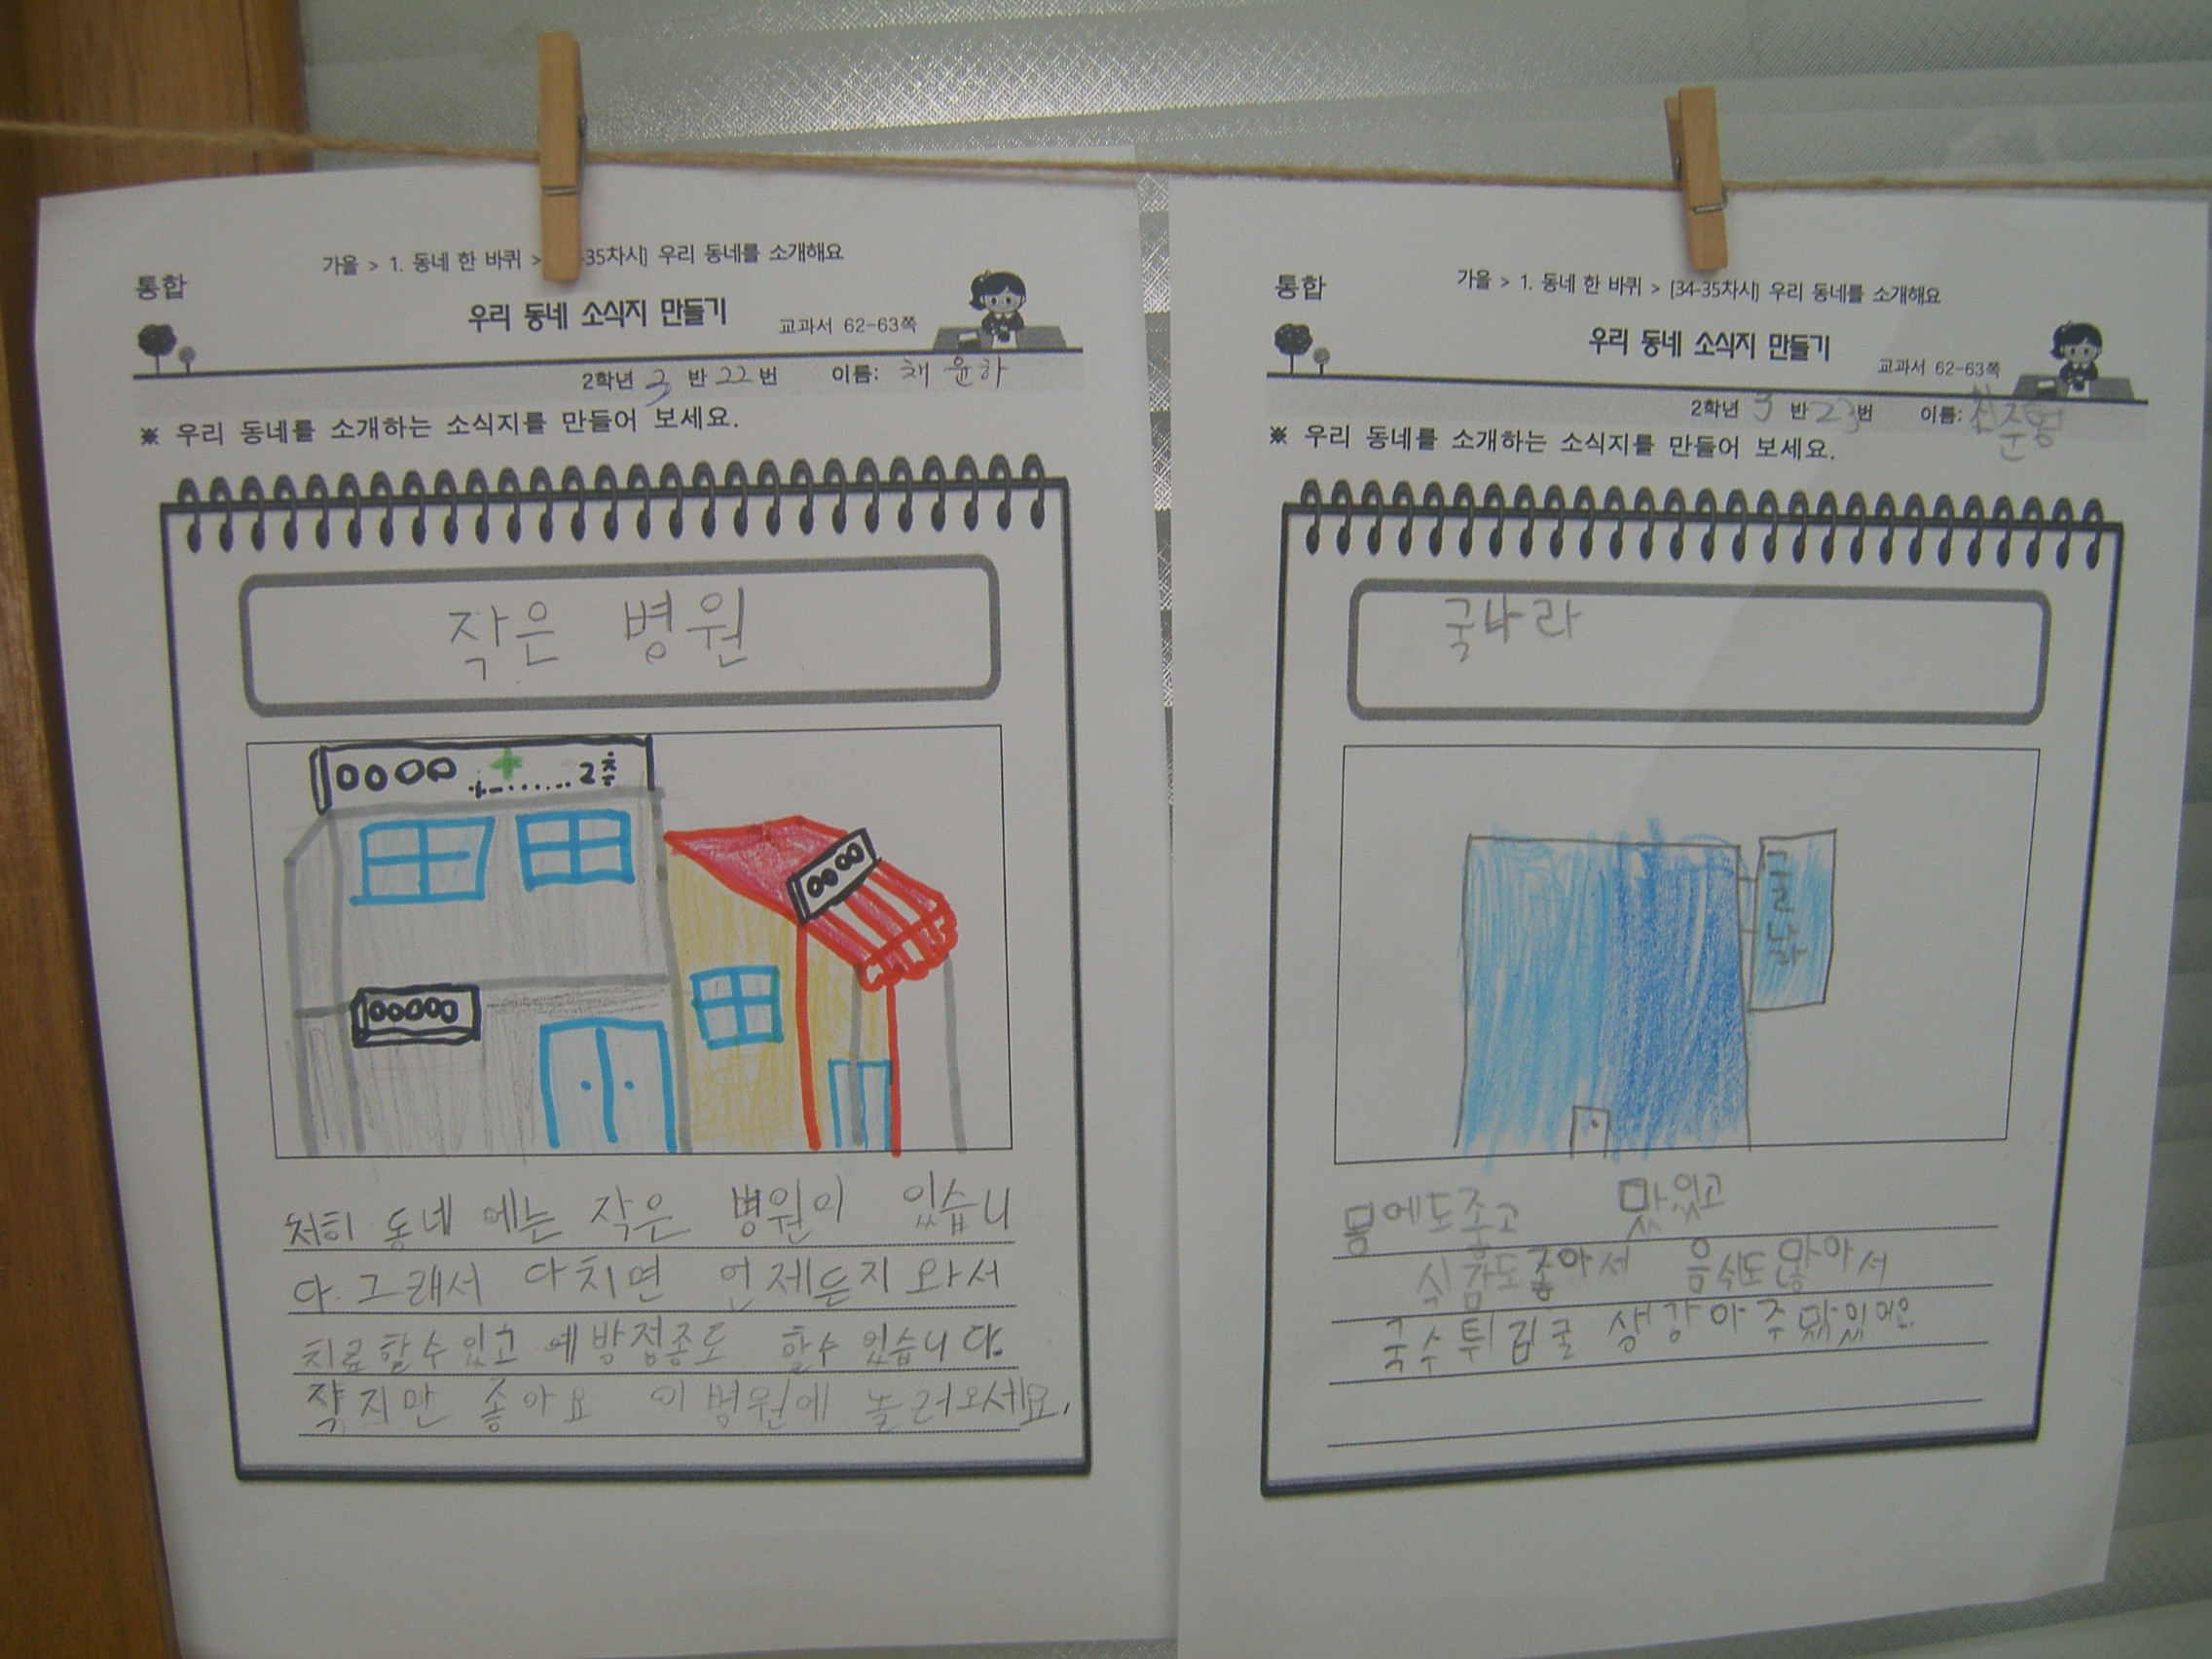 가을 > 1. 동네 한 바퀴 > -35차시] 우리 동네를 소개해요
통합
우리 동네 소식지 만들기
교과서 62-63쪽
2학년 3 반 22번 이름: 채윤하
※ 우리 동네를 소개하는 소식지를 만들어 보세요.
작은 병원
0000 + 2층
0000
00000
저희 동네 에는 작은 병원이 있습니
다. 그래서 다치면 언제든지 와서
치료할수있고 예방접종도 할수 있습니다.
작지만 좋아요 이 병원에 놀러오세요.
가을 > 1. 동네 한 바퀴 > [34-35차시] 우리 동네를 소개해요
통합
우리 동네 소식지 만들기
교과서 62-63쪽
2학년 3 반 23번 이름: 최준영
※ 우리 동네를 소개하는 소식지를 만들어 보세요.
굴나라
몸에도좋고 맛있고
식감도좋아서 음식도많아서
국수튀김굴 생강아주맛있어요.